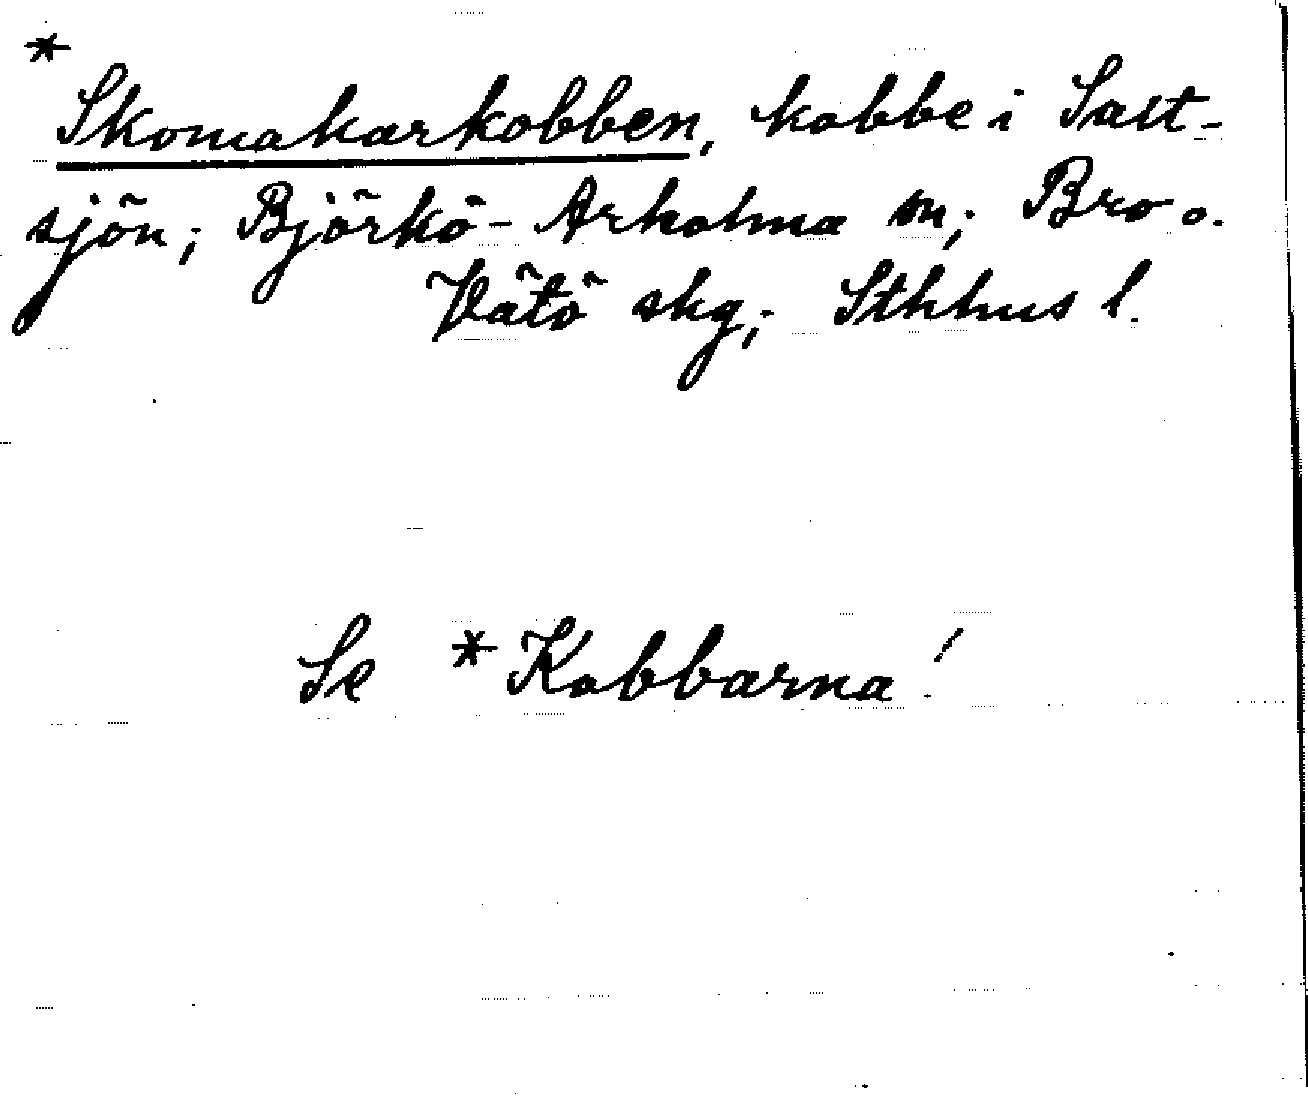 *
Skomakarkobben, kobbe i Salt-
sjön; Björkö-Arholma sn; Bro o.
Vätö skg; Sthlms l.
Se *Kobbarna!